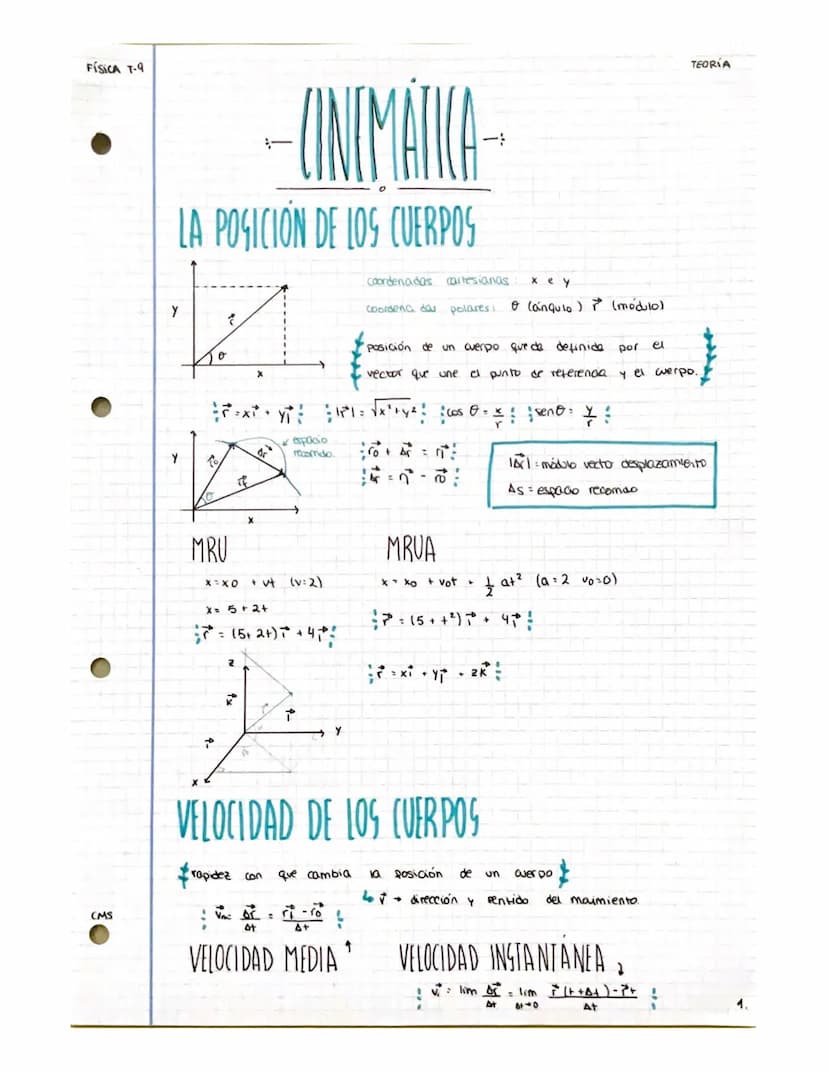 FÍSICA T-9
TEORÍA
CINEMÁTICA
LA POSICIÓN DE LOS CUERPOS
coordenadas cartesianas: x e y
coordenadas polares: θ (ángulo) r⃗ (módulo)
y
r⃗
θ
x
posición de un cuerpo queda definida por el
vector que une el punto de referencia y el cuerpo.
r⃗ = xi⃗ + yj⃗ |r⃗| = √x²+y² cos θ = x/r sen θ = y/r
espacio
recorrido
y
r⃗0
Δr⃗
r⃗1
θ
x
r⃗0 + Δr⃗ = r⃗1
Δr⃗ = r⃗1 - r⃗0
|Δr⃗| = módulo vecto desplazamiento
Δs = espacio recorrido
MRU
x = x0 + vt (v=2)
x = 5 + 2t
r⃗ = (5+2t)i⃗ + 4j⃗
MRUA
x = x0 + v0t + 1/2 at² (a=2 v0=0)
r⃗ = (5+t²)i⃗ + 4j⃗
r⃗ = xi⃗ + yj⃗ + zk⃗
z
k⃗
r⃗
j⃗
y
i⃗
x
VELOCIDAD DE LOS CUERPOS
rapidez con que cambia la posición de un cuerpo
v⃗ → dirección y sentido del movimiento
v⃗m = Δr⃗/Δt = r⃗1 - r⃗0/Δt
CMS
VELOCIDAD MEDIA
VELOCIDAD INSTANTÁNEA
v⃗i = lim Δr⃗/Δt = lim Δt→0 r⃗(t+Δt) - r⃗t/Δt
1.